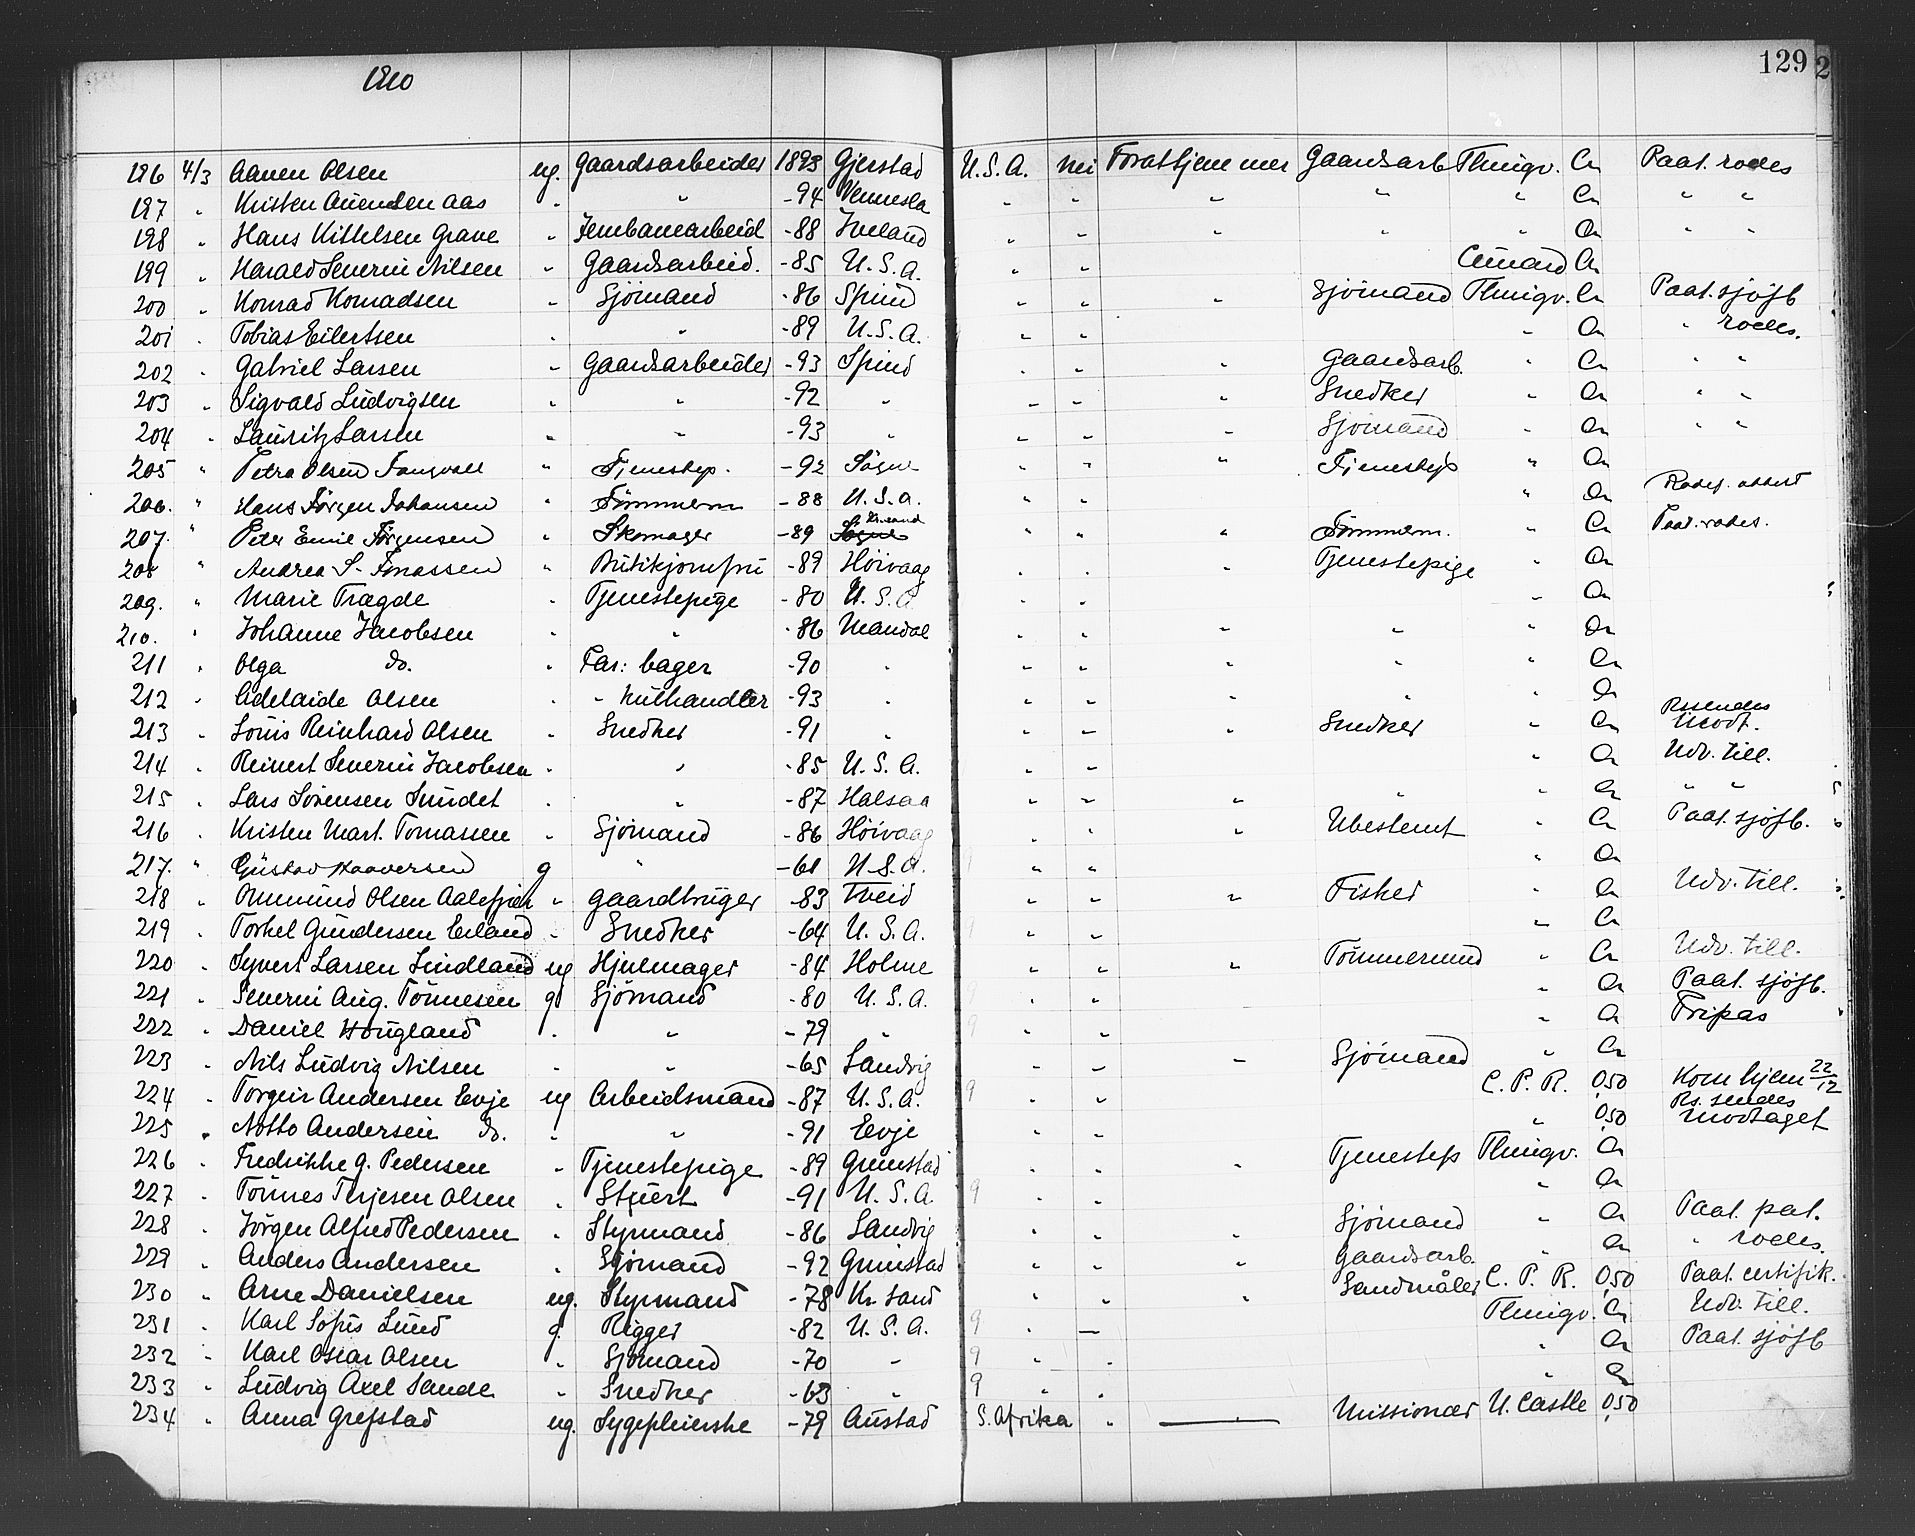 1910 129
196 4/3 Aanen Olsen ug. Gaardsarbeider 1893 Gjerstad U.S.A. nei Forat tjene mer Gaardsarb Thingv. Cr Paat. rodes
197 " Kristen Auensen Aas " " -94 Vennesla " " " " " Cr " "
198 " Hans Kittelsen Grave " Jernbanearbeid -88 Iveland " " " " " Cr " "
199 " Harald Severin Nilsen " Gaardsarbeid. -85 U.S.A. " " Cunard Cr
200 " Konrad Konradsen " Sjömand -86 Spind " " " Sjömand Thingv. Cr Paat. sjöfb
201 " Tobias Eilertsen " " -89 U.S.A. " " " Cr " rodes.
202 " Gabriel Larsen " Gaardsarbeider -93 Spind " " " Gaardsarb. " Cr " "
203 " Sigvald Ludvigsen " " -92 " " " " Snedker " Cr " "
204 " Lauritz Larsen " " -93 " " " " Sjömand " Cr " "
205 " Petra Olsen " Tjenestep. -92 Søgne " " " Tjenestep " Cr
206. " Hans Jørgen Johansen " Tömmerm -88 U.S.A. " " " Cr
207. " Peter Emil Jørgensen " Skomager -89 Søgne Kr.sand " " " Tömmerm. " Cr Paat. rodes.
208 " Andrea S. Jonassen " Butikjomfru -89 Höivaag " " " Tjenestepige " Cr
209. " Marie Trægde " Tjenestepige -80 U.S.A. " " " Cr
210. " Johanne Jacobsen " " -86 Mandal " " " " " Cr
211 " Olga do. " Far: bager -90 " " " " " " Cr
212 " Adelaide Olsen " " kulhandler -93 " " " " " " Cr
213 " Louis Reinhard Olsen " Snedker -91 " " " " Snedker " Cr Rs sendes Modt.
214 " Reinert Severin Jacobsen " " -85 U.S.A. " " " Cr Udv. till.
215 " Lars Sörensen Sundet " " -87 Halsaa " " " " " Cr " "
216 " Kristen Mart. Tomassen " Sjömand -86 Höivaag " " " Ubestemt " Cr Paat. sjöfb.
217. " Gustav Haaversen g " -61 U.S.A. " " " Cr
218 " Ommund Olsen " Gaardbruger -83 Tveid " " " Fisker " Cr Udv. till.
219 " Torkel Gundersen Eeland " Snedker -64 U.S.A. " " " Cr
220 " Syvert Larsen Lindland ug Hjulmager -84 Holme " " " Tömmermand " Cr Udv. till.
221 " Severin Aug. Tönnesen g Sjömand -80 U.S.A. " " " Cr Paat. sjöfb.
222 " Daniel Hougland " " -79 " " " " Cr Fripas
223 " Nils Ludvig Nilsen " " -65 Landvig " " " Sjömand " Cr
224 " Torgeir Andersen Evje ug Arbeidsmand -87 U.S.A. 9 " " C. P. R. 0,50 Kom hjem 22/12
225 " Notto Andersen do. " " -91 Evje " " " 0,50 Rs. sendes modtaget
226 " Fredrikke G. Pedersen " Tjenestepige -89 Grimstad " " " Tjenestep Thingv. Cr
227 " Tönnes Terjesen Olsen " Stuert -91 U.S.A. 9 " " " Cr
228 " Jörgen Alfred Pedersen " Styrmand -86 Landvig " " " Sjömand " Cr Paat. pat.
229 " Anders Andersen " Sjömand -92 Grimstad " " " Gaardsarb. " Cr " rodes.
230 " Arne Danielsen ug. Styrmand -78 Kr. sand " " " Landmåler C. P. R. 0,50 Paat. certifik.
231 " Karl Sofus Lund g. Rigger -82 U.S.A. 9 " " Thingv. Cr Udv. till.
232 " Karl Oscar Olsen " Sjömand -70 " 9 " " " Cr Paat. sjöfb
233 " Ludvig Axel Sande " Snedker -63 " 9 " " " Cr
234 " Anna Grefstad ug. Sygepleierske -79 Austad S. Afrika " " Missionær U. Castle 0,50